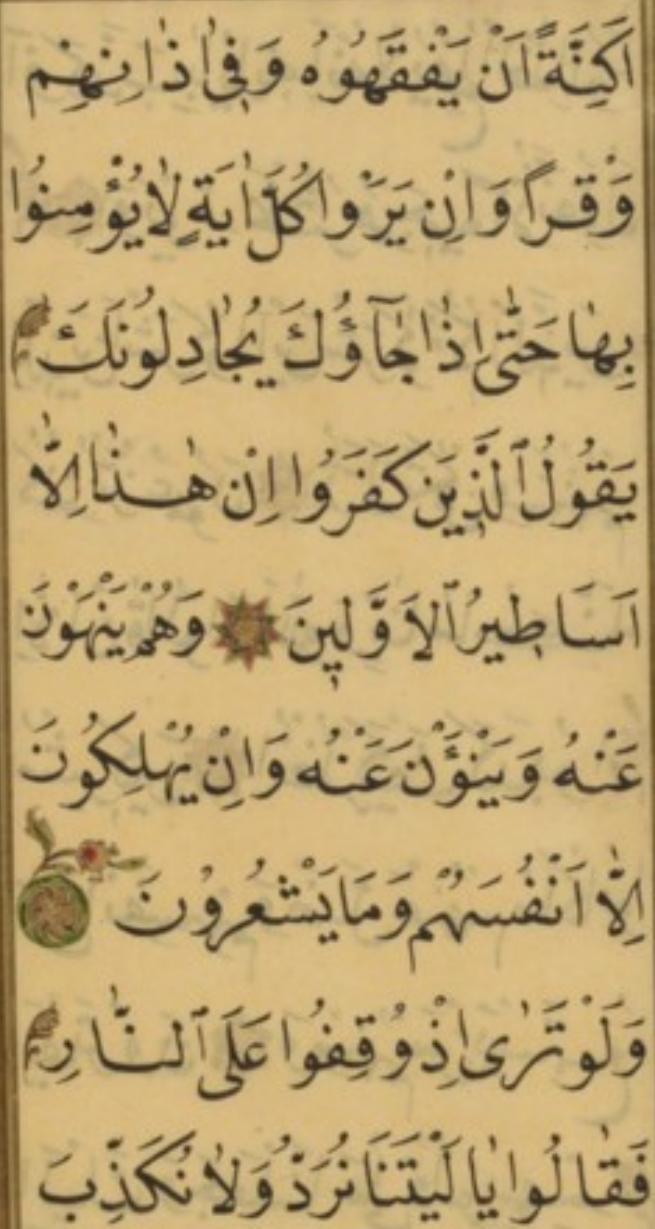 اَكِنَّةً اَنْ يَفْقَهُوهُ وَفٖى اٰذَانِهِمْ
وَقْرًا وَاِنْ يَرَوْا كُلَّ اٰيَةٍ لَا يُؤْمِنُوا
بِهَا حَتّٰى اِذَا جَآؤُكَ يُجَادِلُونَكَ
يَقُولُ ٱلَّذٖينَ كَفَرُوا اِنْ هٰذَا اِلَّا
اَسَاطٖيرُ ٱلْاَوَّلٖينَ وَهُمْ يَنْهَوْنَ
عَنْهُ وَيَنْؤَنَ عَنْهُ وَاِنْ يُهْلِكُونَ
اِلَّا اَنْفُسَهُمْ وَمَا يَشْعُرُونَ
وَلَوْ تَرٰى اِذْ وُقِفُوا عَلَى ٱلنَّارِ
فَقَالُوا يَا لَيْتَنَا نُرَدُّ وَلَا نُكَذِّبَ